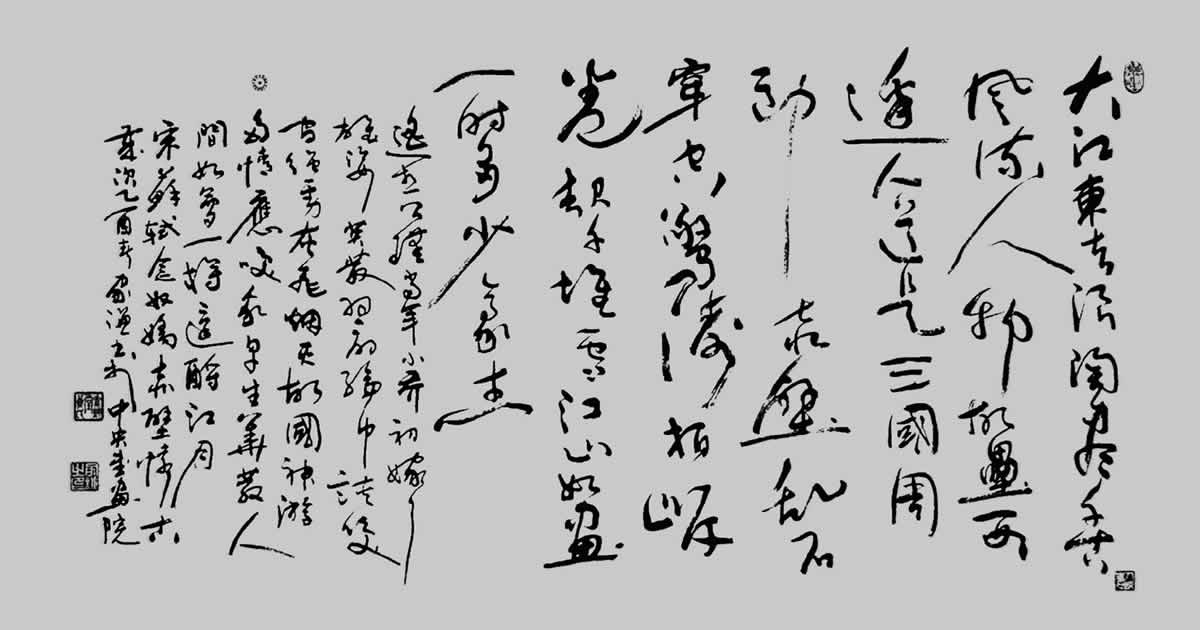 大江東去浪淘盡千古
風流人物故壘西
邊人道是三國周
郎赤壁乱石
穿空驚濤拍岸
卷起千堆雪江山如畫
一時多少豪杰
遙想公瑾當年小喬初嫁了
雄姿英發羽扇綸巾談笑
間強虜灰飛烟灭故國神游
多情應笑我早生華發人
間如夢一樽還酹江月
宋蘇軾念奴嬌赤壁懷古
歲次乙酉春書於中央書畫院